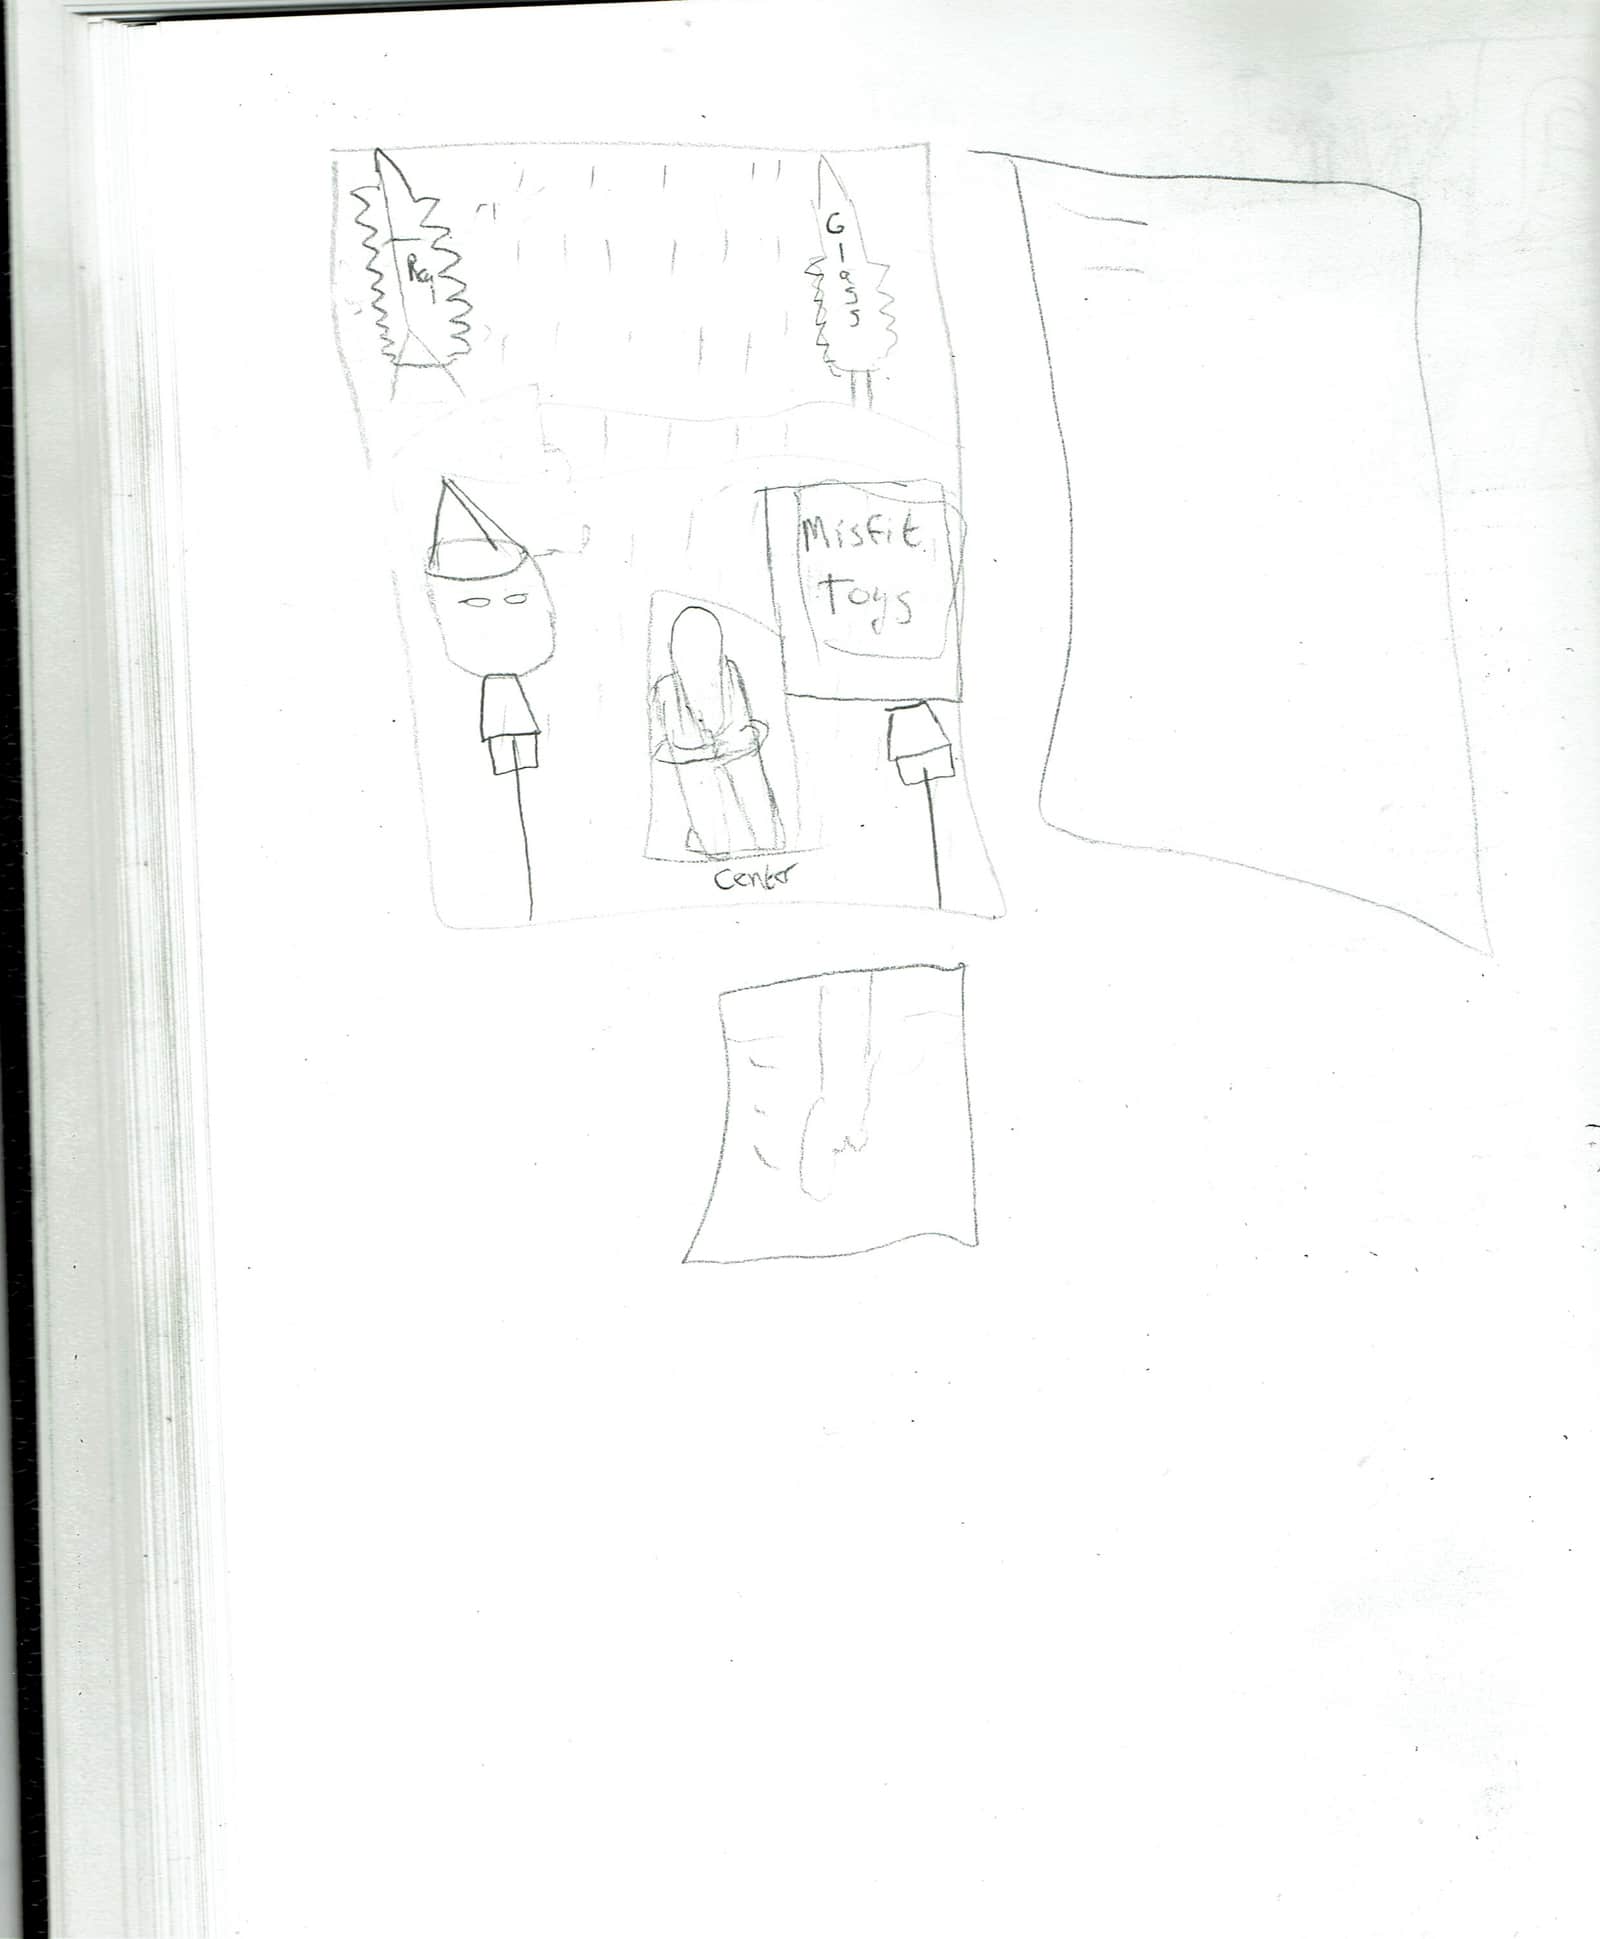 Glass
Misfit
Toys
Center